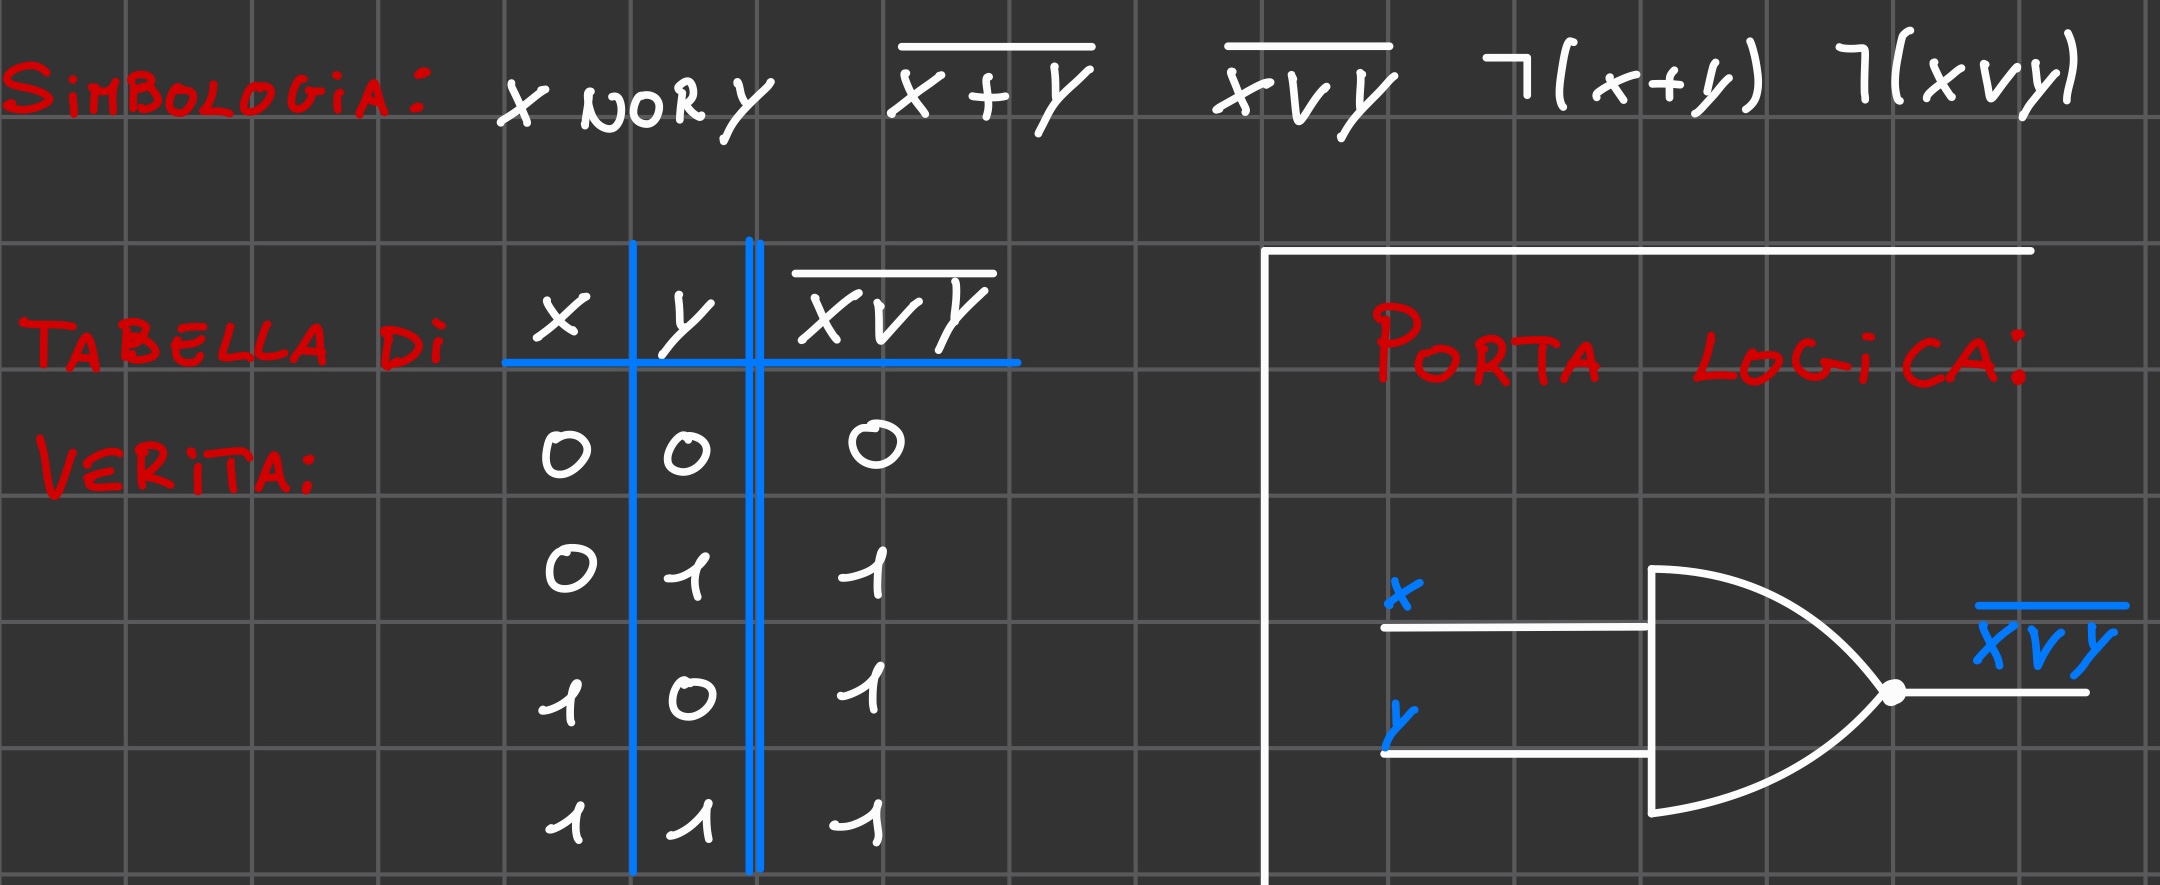 SIMBOLOGIA: x NOR y x̅ ̅+̅ ̅y̅ x̅ ̅v̅ ̅y̅ ¬(x+y) ¬(x∨y)
x y x̅ ̅v̅ ̅y̅
TABELLA DI
VERITA:
0 0 0
0 1 1
1 0 1
1 1 1
PORTA LOGICA:
x
y
x̅ ̅v̅ ̅y̅